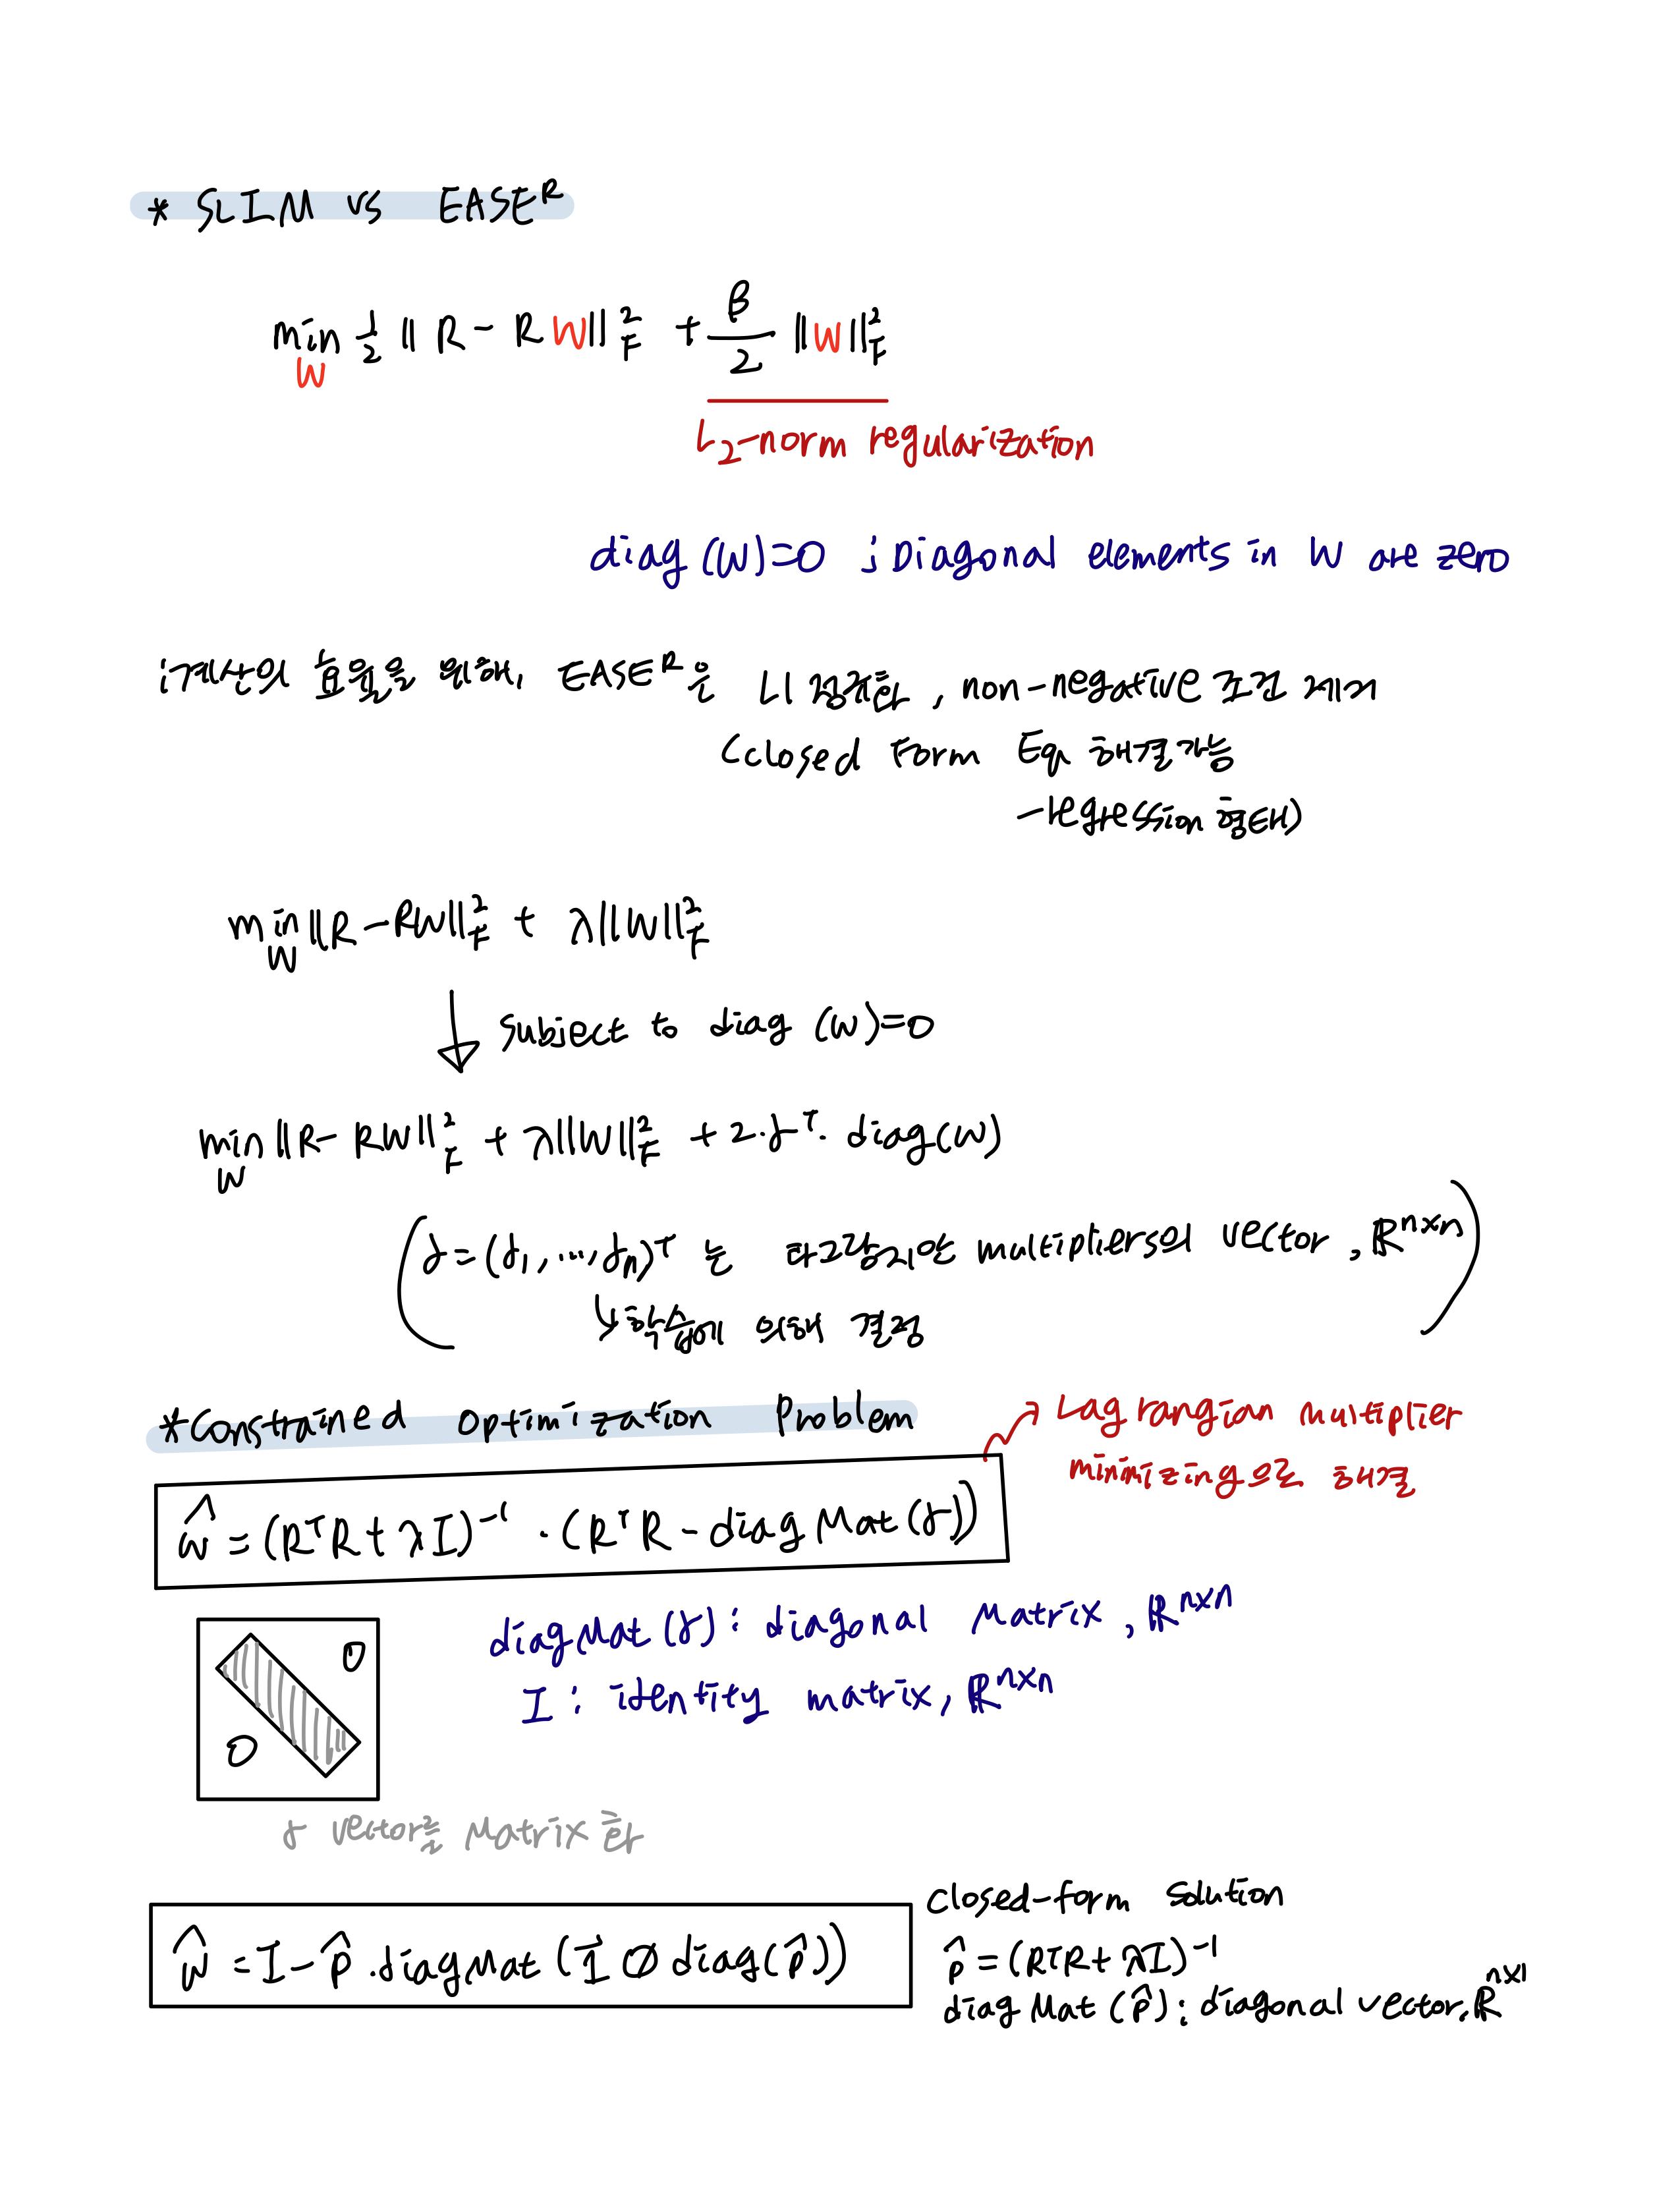 * SLIM vs EASE^R
min_W 1/2 ‖R - RW‖²_F + β/2 ‖W‖²_F
L₂-norm regularization
diag(W)=0 ; Diagonal elements in W are zero
; 계산의 효율을 위해, EASE^R은 L1 정규화, non-negative 조건 제거
(closed form Eq 해결가능
- regression 형태)
min_W ‖R - RW‖²_F + λ‖W‖²_F
↓ subject to diag(W)=0
min_W ‖R - RW‖²_F + λ‖W‖²_F + 2·γ^T·diag(W)
(γ=(γ₁, ..., γn)^T 는 라그랑지안 multipliers의 vector, ℝ^{n×n})
↳ 학습에 의해 결정
* Constrained optimization Problem
→ Lagrangian multiplier
minimizing으로 해결
Ŵ = (R^TR + λI)^{-1} · (R^TR - diagMat(γ))
diagMat(γ) : diagonal Matrix, ℝ^{n×n}
I : identity matrix, ℝ^{n×n}
0
0
γ vector를 Matrix화
Ŵ = I - P̂ · diagMat(1⃗ ⊘ diag(P̂))
closed-form solution
P̂ = (R^TR + λI)^{-1}
diagMat(P̂) : diagonal vector, ℝ^{n×1}